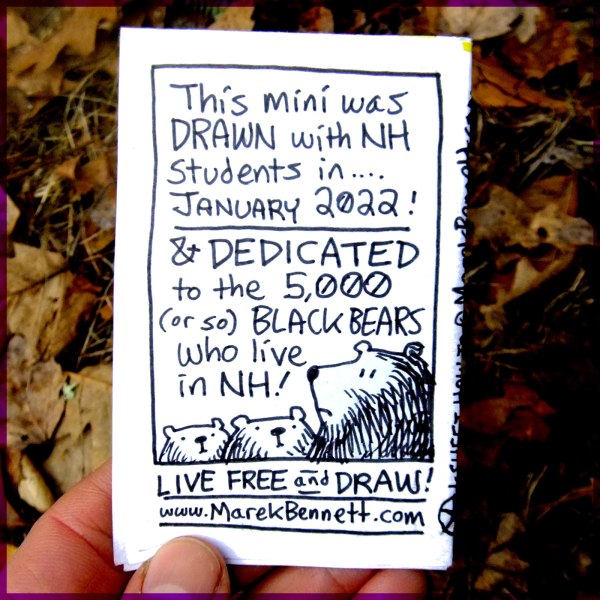 This mini was
DRAWN with NH
students in....
JANUARY 2022!
& DEDICATED
to the 5,000
(or so) BLACK BEARS
who live
in NH!
LIVE FREE and DRAW!
www.MarekBennett.com